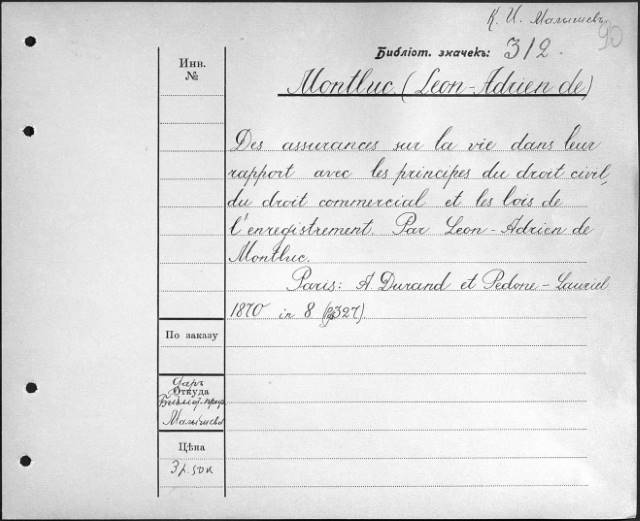 К. И. Малышевъ.
90
Библіот. значекъ: 312.
Инв.
№
Montluc (Leon-Adrien de)
Des assurances sur la vie dans leur
rapport avec les principes du droit civil,
du droit commercial et les lois de
l'enregistrement. Par Leon-Adrien de
Montluc.
Paris: A. Durand et Pedone-Lauriel
1870 in 8 (327).
По заказу
Откуда
Даръ
Библіот. проф.
Малышева
Цѣна
3 р. 50 к